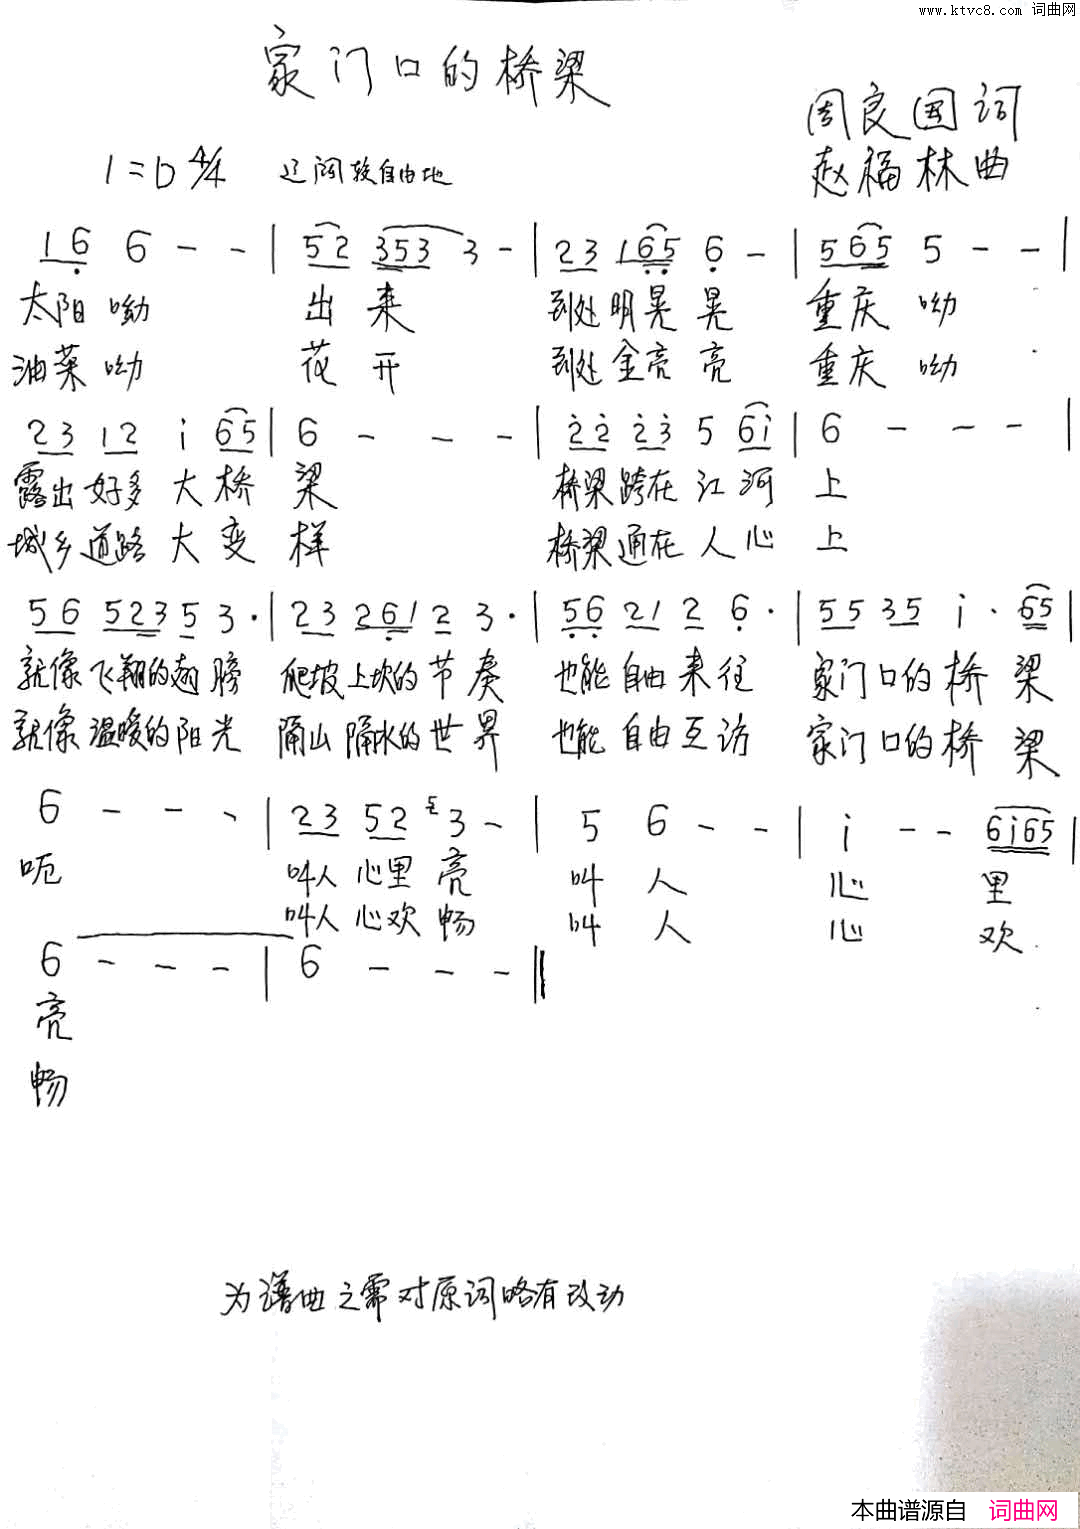 www.ktvc8.com 词曲网
家门口的桥梁
周良国词
1=D 4/4 辽阔较自由地
赵福林曲
1 6 6 - - | 5 2 3 5 3 3 - | 2 3 1 6 5 6 - | 5 6 5 5 - - |
太阳呦 出来 到处明晃晃 重庆呦
油菜呦 花开 到处金亮亮 重庆呦
2 3 1 2 i 6 5 | 6 - - - | 2 2 2 3 5 6 i | 6 - - - |
露出好多大桥梁 桥梁跨在江河上
城乡道路大变样 桥梁通在人心上
5 6 5 2 3 5 3 · | 2 3 2 6 1 2 3 · | 5 6 2 1 2 6 · | 5 5 3 5 i · 6 5 |
就像飞翔的翅膀 爬坡上坎的节奏 也能自由来往 家门口的桥梁
就像温暖的阳光 隔山隔水的世界 也能自由互访 家门口的桥梁
6 - - - | 2 3 5 2 5 3 - | 5 6 - - | i - - 6 i 6 5 |
呃 叫人心里亮 叫人心里
叫人心欢畅 叫人心欢
6 - - - | 6 - - - ‖
亮
畅
为谱曲之需对原词略有改动
本曲谱源自 词曲网